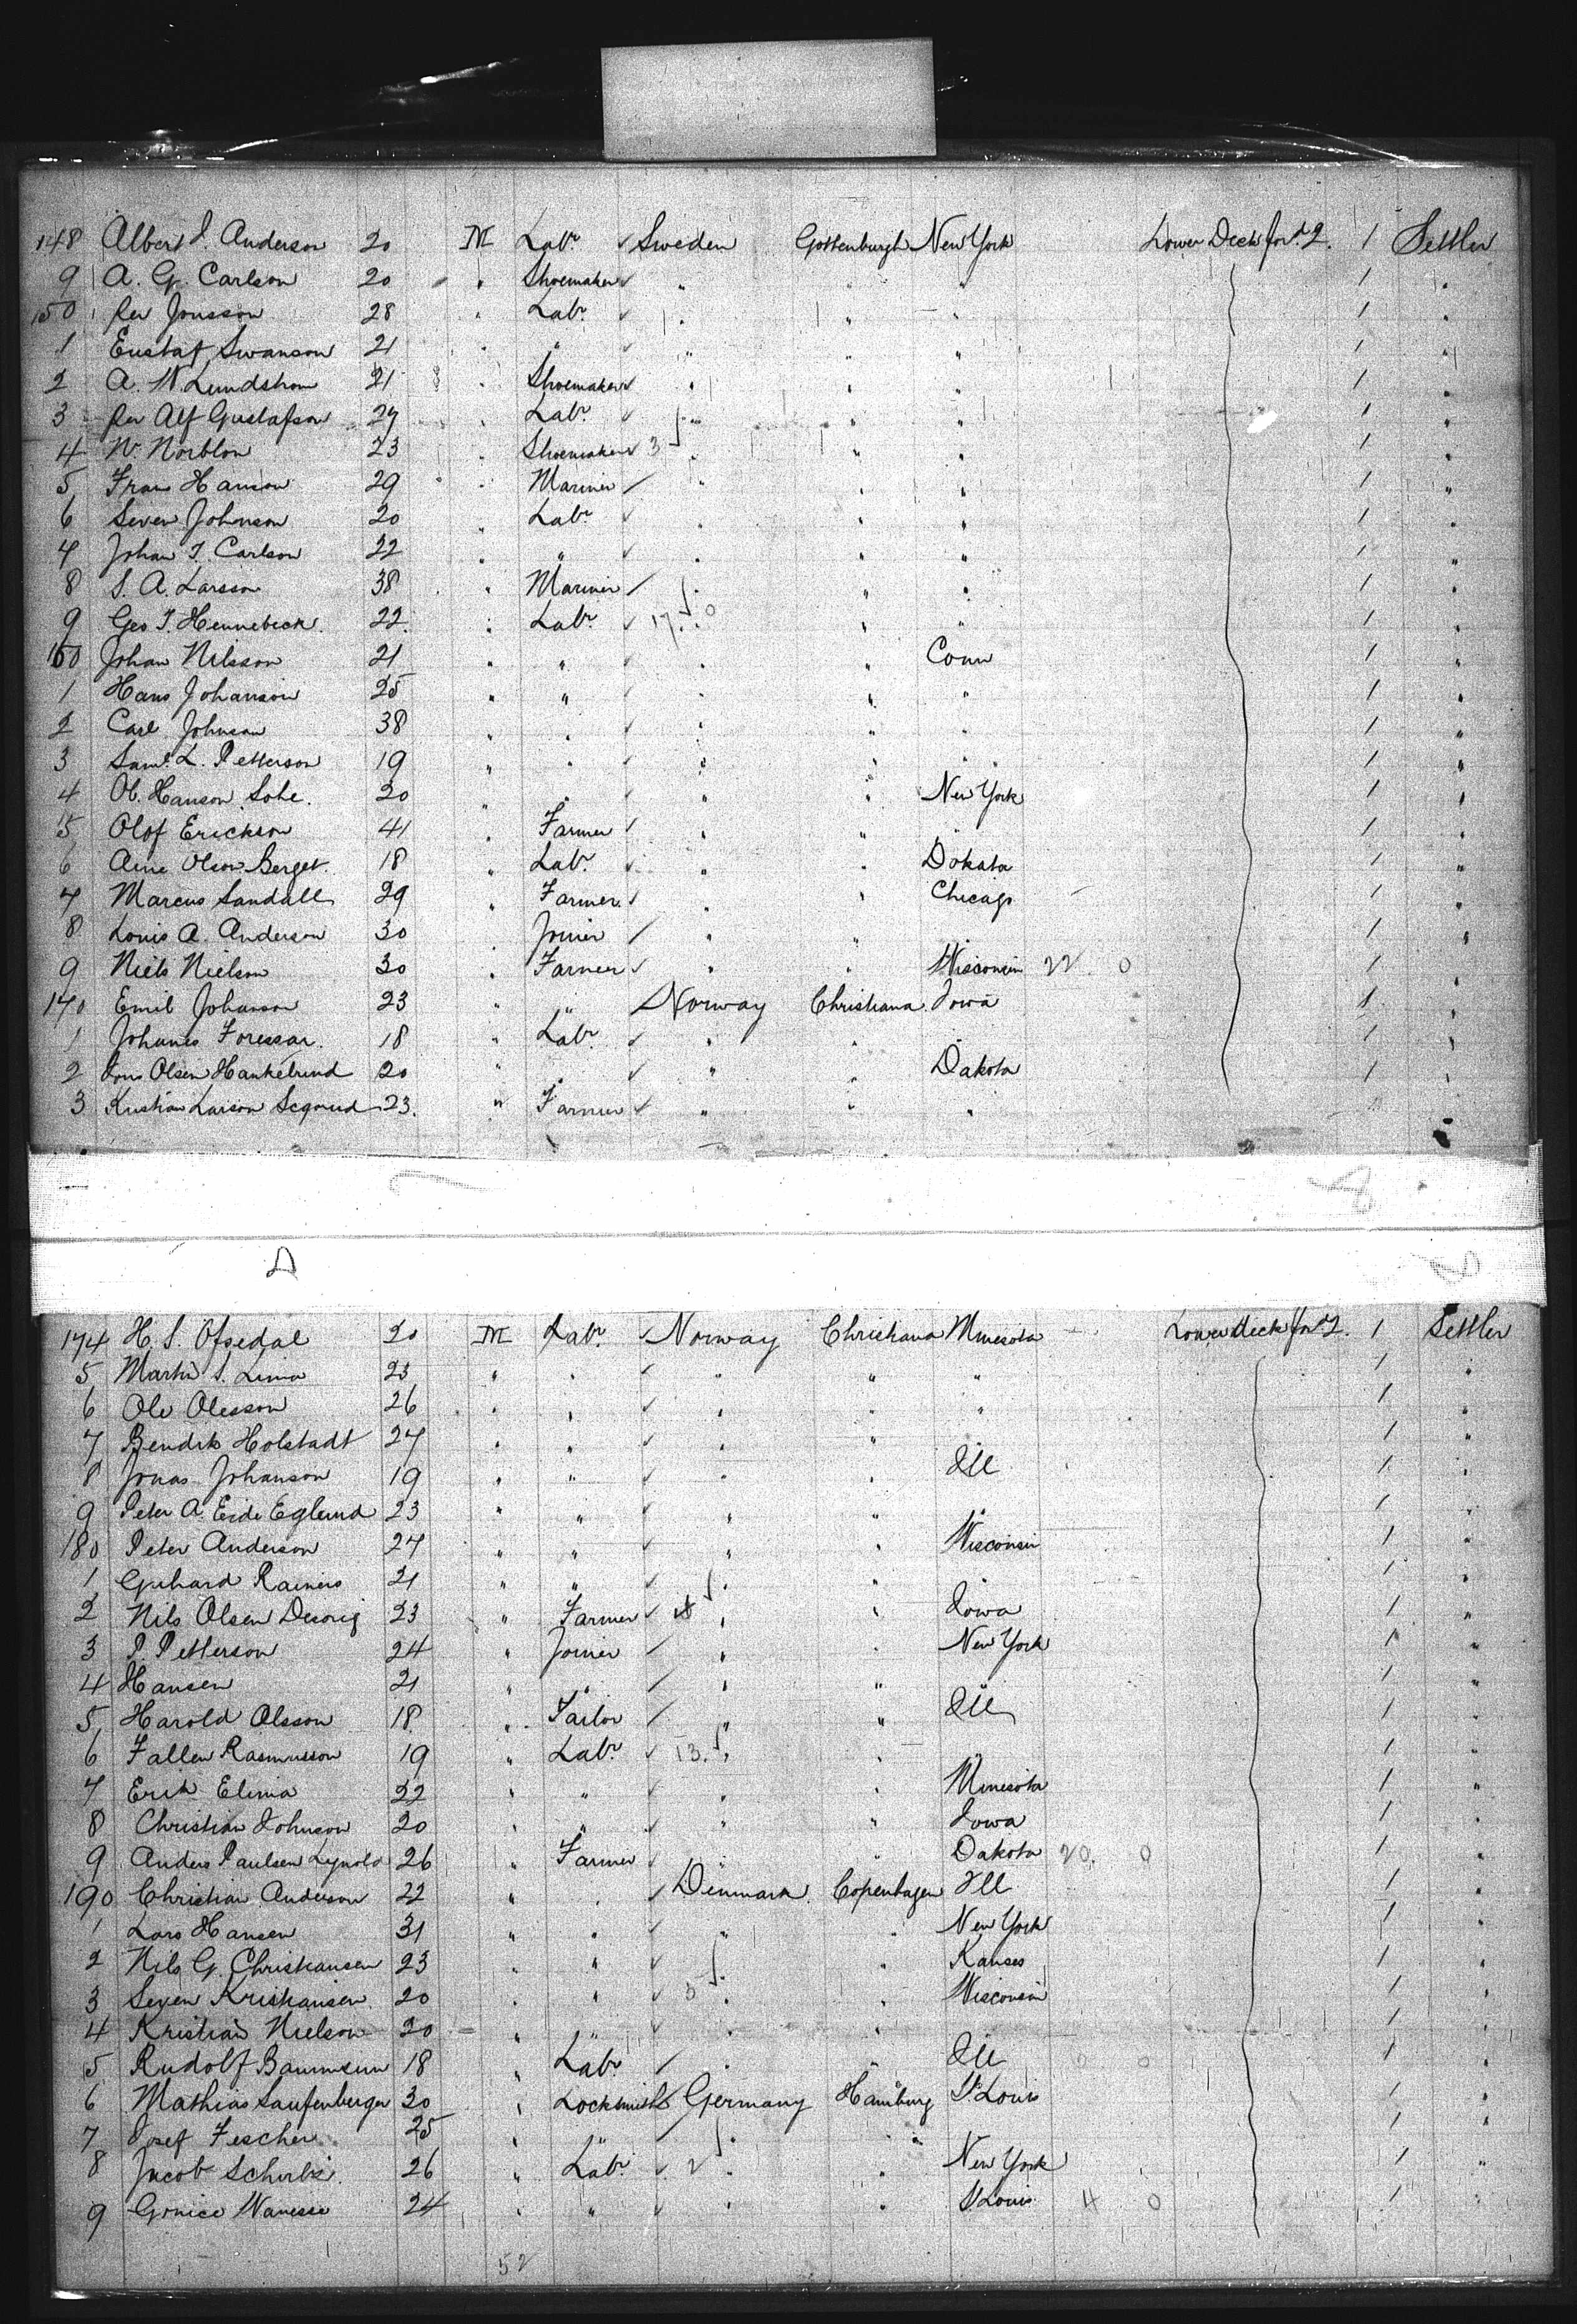 148 Albert J. Anderson 20 M Labr Sweden Gottenburgh New York Lower Deck ford 2. 1 Settler
9 A. G. Carlson 20 " Shoemaker " " " 1 "
150 Per Jonsson 28 " Labr " " " 1 "
1 Gustaf Swanson 21 " " " " " 1 "
2 A. W. Lundstrom 21 " Shoemaker " " " 1 "
3 Per Alf Gustafson 27 " Labr " " " 1 "
4 N. Norblom 23 " Shoemaker 3 " " " 1 "
5 Frans Hanson 29 " Mariner " " " 1 "
6 Seven Johnson 20 " Labr " " " 1 "
7 Johan T. Carlson 22 " " " " " 1 "
8 S. A. Larsson 38 " Mariner " " " 1 "
9 Geo T. Hennebeck 22 " Labr 17 " " " 1 "
160 Johan Nilsson 21 " " " " Conn 1 "
1 Hans Johanson 25 " " " " " 1 "
2 Carl Johnson 38 " " " " " 1 "
3 Saml L. Petterson 19 " " " " " 1 "
4 Ol. Hanson Sohe. 20 " " " " New York 1 "
5 Olof Erickson 41 " Farmer " " " 1 "
6 Arne Olson Berget. 18 " Labr " " Dokata 1 "
7 Marcus Sandall 29 " Farmer " " Chicago 1 "
8 Louis A. Anderson 30 " Joiner " " " 1 "
9 Niels Nielson 30 " Farmer " " Wisconsin 22 0 1 "
170 Emil Johanson 23 " " Norway Christiana Iowa 1 "
1 Johanes Foressar. 18 " Labr " " " 1 "
2 Jons Olsen Hankelrund 20 " " " " Dakota 1 "
3 Kristian Larson Segrud 23. " Farmer " " " 1 "
174 H. S. Ofsedal 20 M Labr Norway Christiana Minesota Lower deck ford 2. 1 Settler
5 Martin S. Lima 23 " " " " " 1 "
6 Ole Olesson 26 " " " " " 1 "
7 Bendik Holstadt 27 " " " " 1 "
8 Jonas Johanson 19 " " " " Ill 1 "
9 Peter A. Eide Eglund 23 " " " " " 1 "
180 Peter Anderson 27 " " " " Wisconsin 1 "
1 Guhard Rainers 21 " " " " " 1 "
2 Nils Olsen Desorig 23 " Farmer " " Iowa 1 "
3 P. Petterson 24 " Joiner " " New York 1 "
4 Hansen 21 " " " " " 1 "
5 Harold Olsson 18 " Tailor " " Ill 1 "
6 Fallen Rasmusson 19 " Labr 13. " " " 1 "
7 Erik Elima 22 " " " " Minesota 1 "
8 Christian Johnson 20 " " " " Iowa 1 "
9 Anders Paulsen Lynold 26 " Farmer " " Dakota 20. 0 1 "
190 Christian Anderson 22 " " Denmark Copenhagen Ill 1 "
1 Lars Hansen 31 " " " " New York 1 "
2 Nils G. Christiansen 23 " " " " Kanses 1 "
3 Seven Kristiansen 20 " " 3 " " Wisconsin 1 "
4 Kristian Nielson 20 " " " " " 1 "
5 Rudolf Baumsum 18 " Labr " " Ill 0 0 1 "
6 Mathias Laufenberger 30 " Locksmith Germany Hamburg St Louis 1 "
7 Josef Fescher 25 " " " " " 1 "
8 Jacob Scherbi 26 " Labr 2 " " New York 1 "
9 Gonice Wanesse 24 " " " " St Louis 4 0 1 "
52